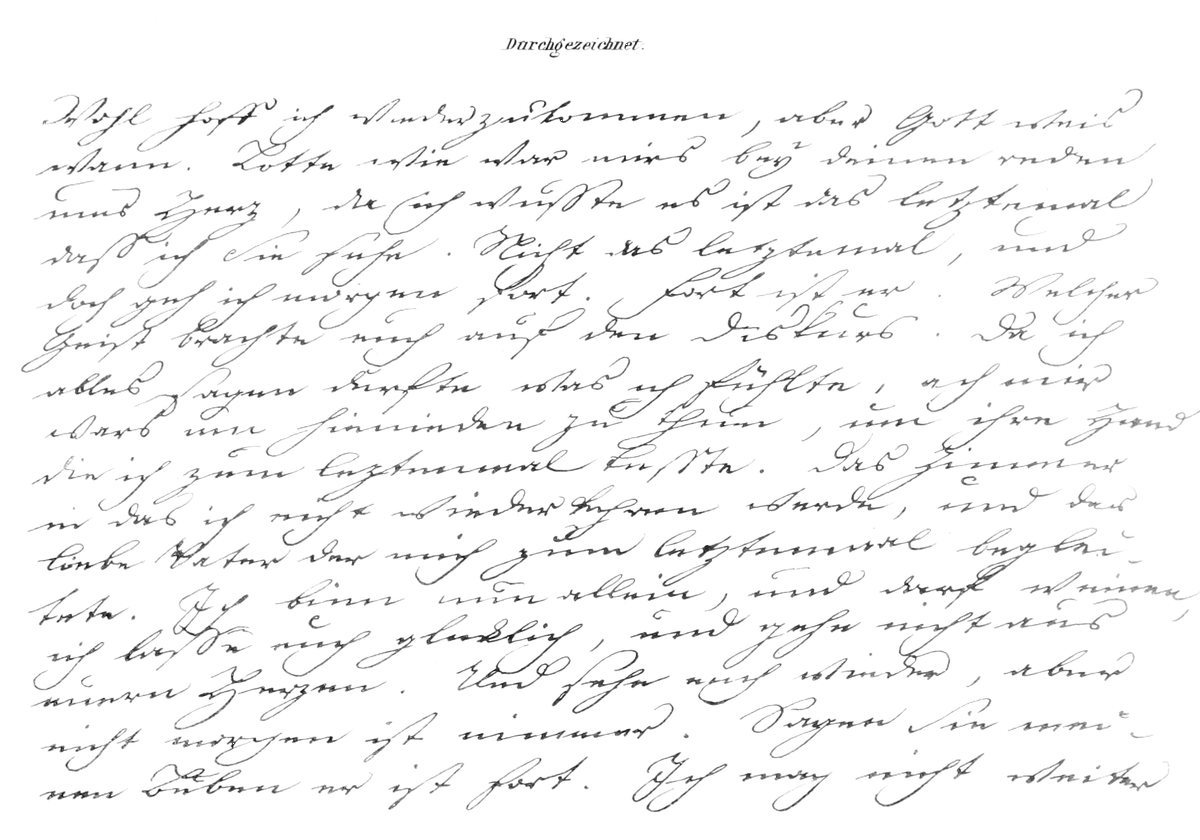 Durchgezeichnet.
Wohl hoff ich wiederzukommen, aber Gott weis
wann. Lotte wie war mirs bey deinen reden
ums Herz, da ich wusste es ist das letztemal
dass ich Sie sehe. Nicht das letztemal, und
doch geh ich morgen fort. Fort ist er. Welcher
Geist brachte euch auf den Diskurs. Da ich
alles sagen durfte was ich fühlte, ach mir
wars um hienieden zu thun, um ihre Hand
die ich zum letztenmal kusste. Das Zimmer
in das ich nicht wiederkehren werde, und der
liebe Vater der mich zum letztenmal beglei-
tete. Ich binn nun allein, und darf weinen,
ich lasse euch glucklich, und gehe nicht aus
euern Herzen. Und sehe euch wieder, aber
nicht morgen ist nimmer. Sagen Sie mei-
nen Buben er ist fort. Ich mag nicht weiter